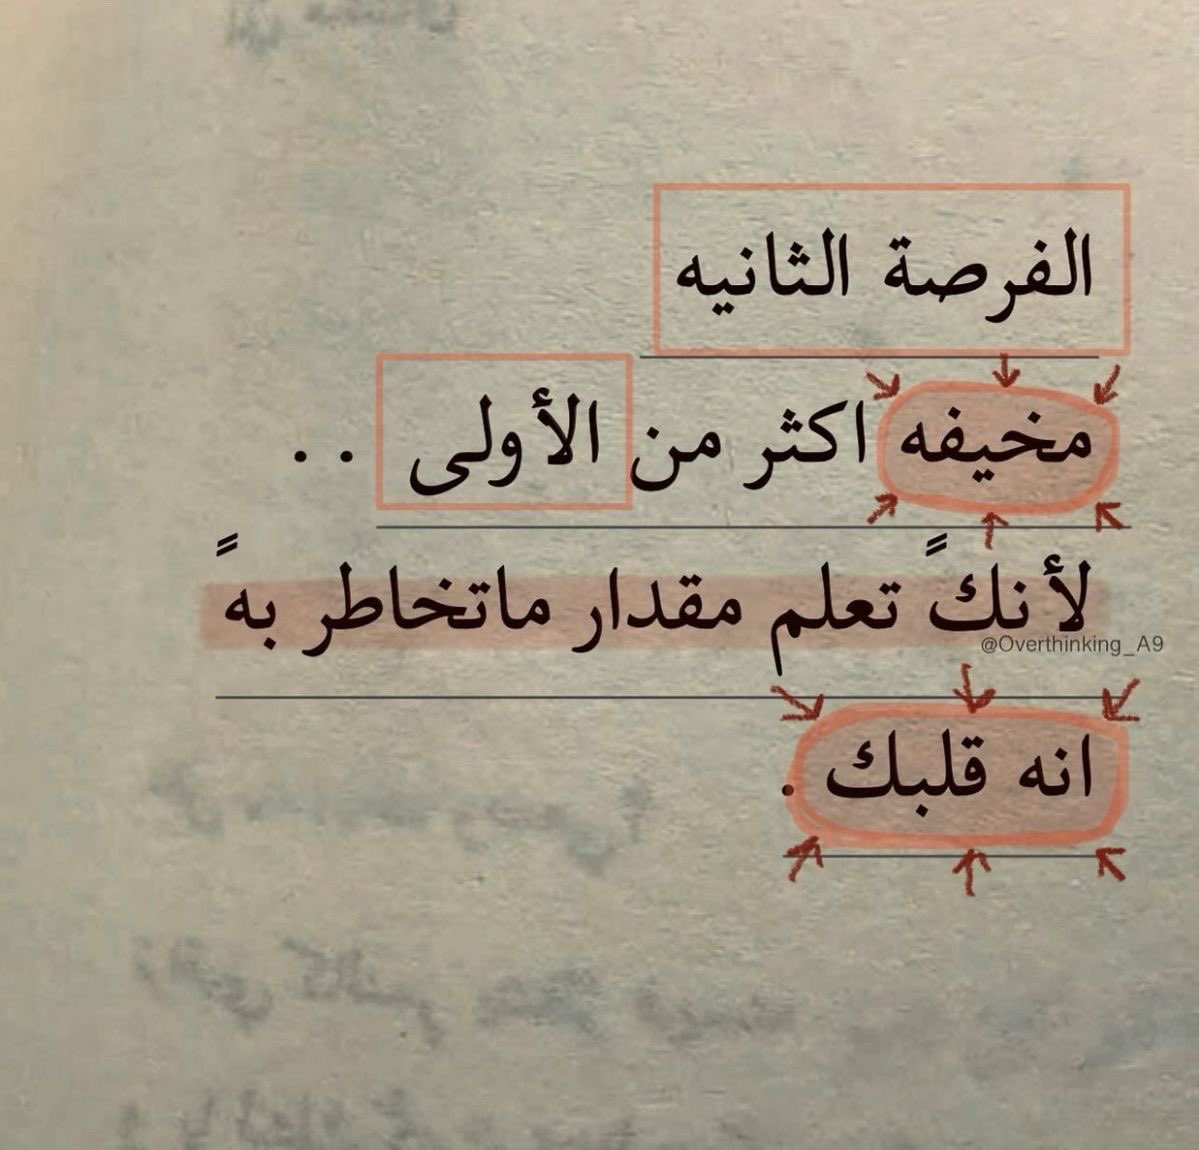 الفرصة الثانيه
مخيفه اكثر من الأولى . .
لأنكً تعلم مقدار ماتخاطر بهً
@Overthinking_A9
انه قلبك .